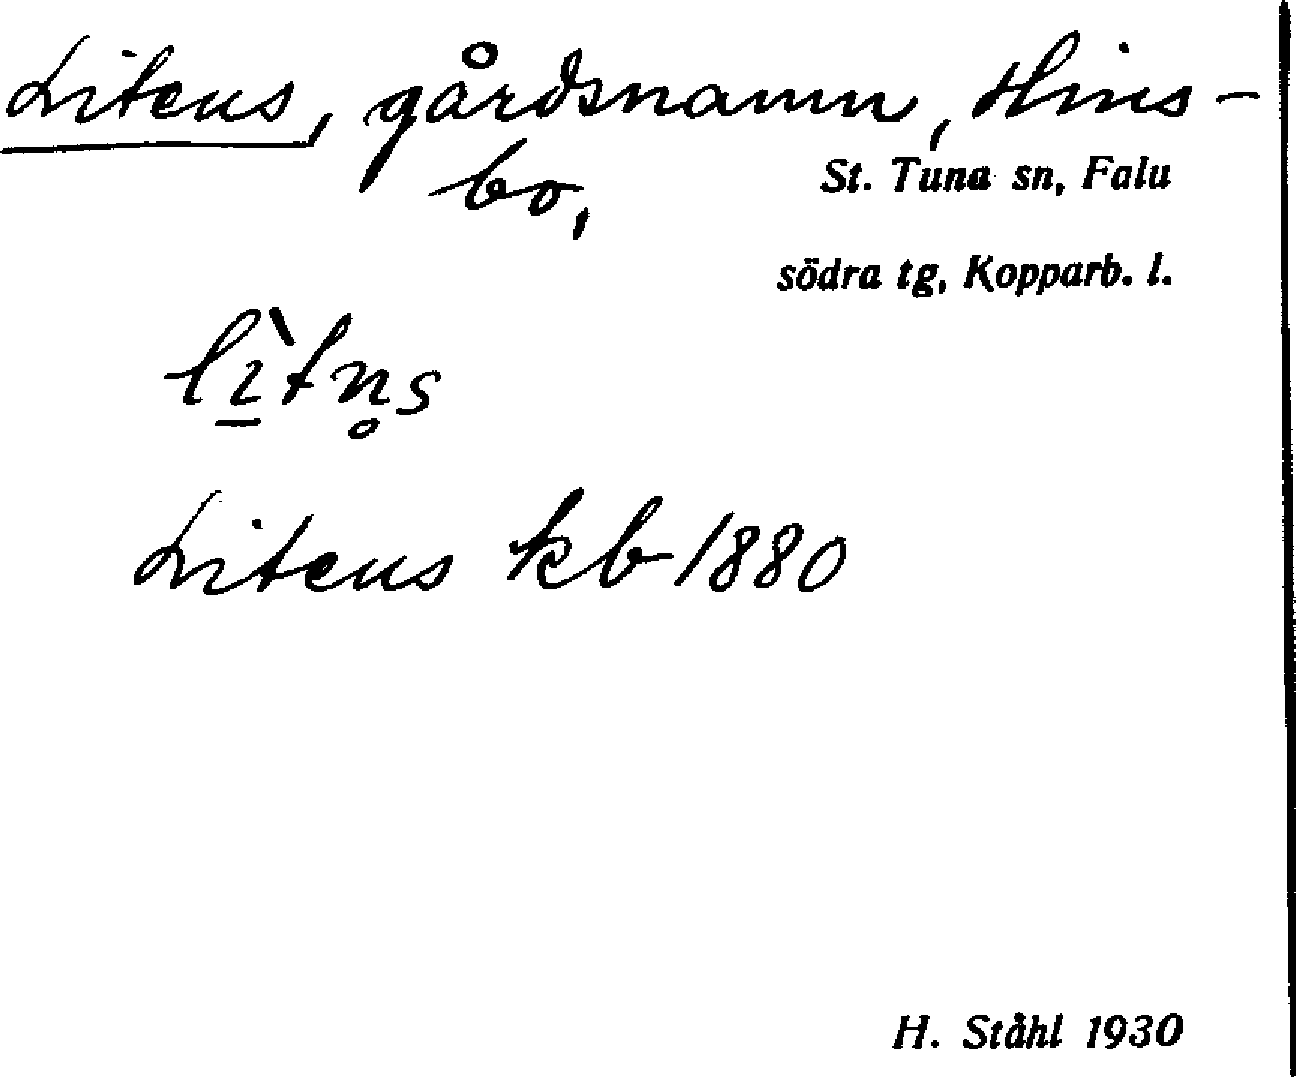 Litens, gårdsnamn, Hins-
bo,
St. Tuna sn, Falu
södra tg, Kopparb. l.
lı̱̀tn̥s
Litens kb 1880
H. Ståhl 1930